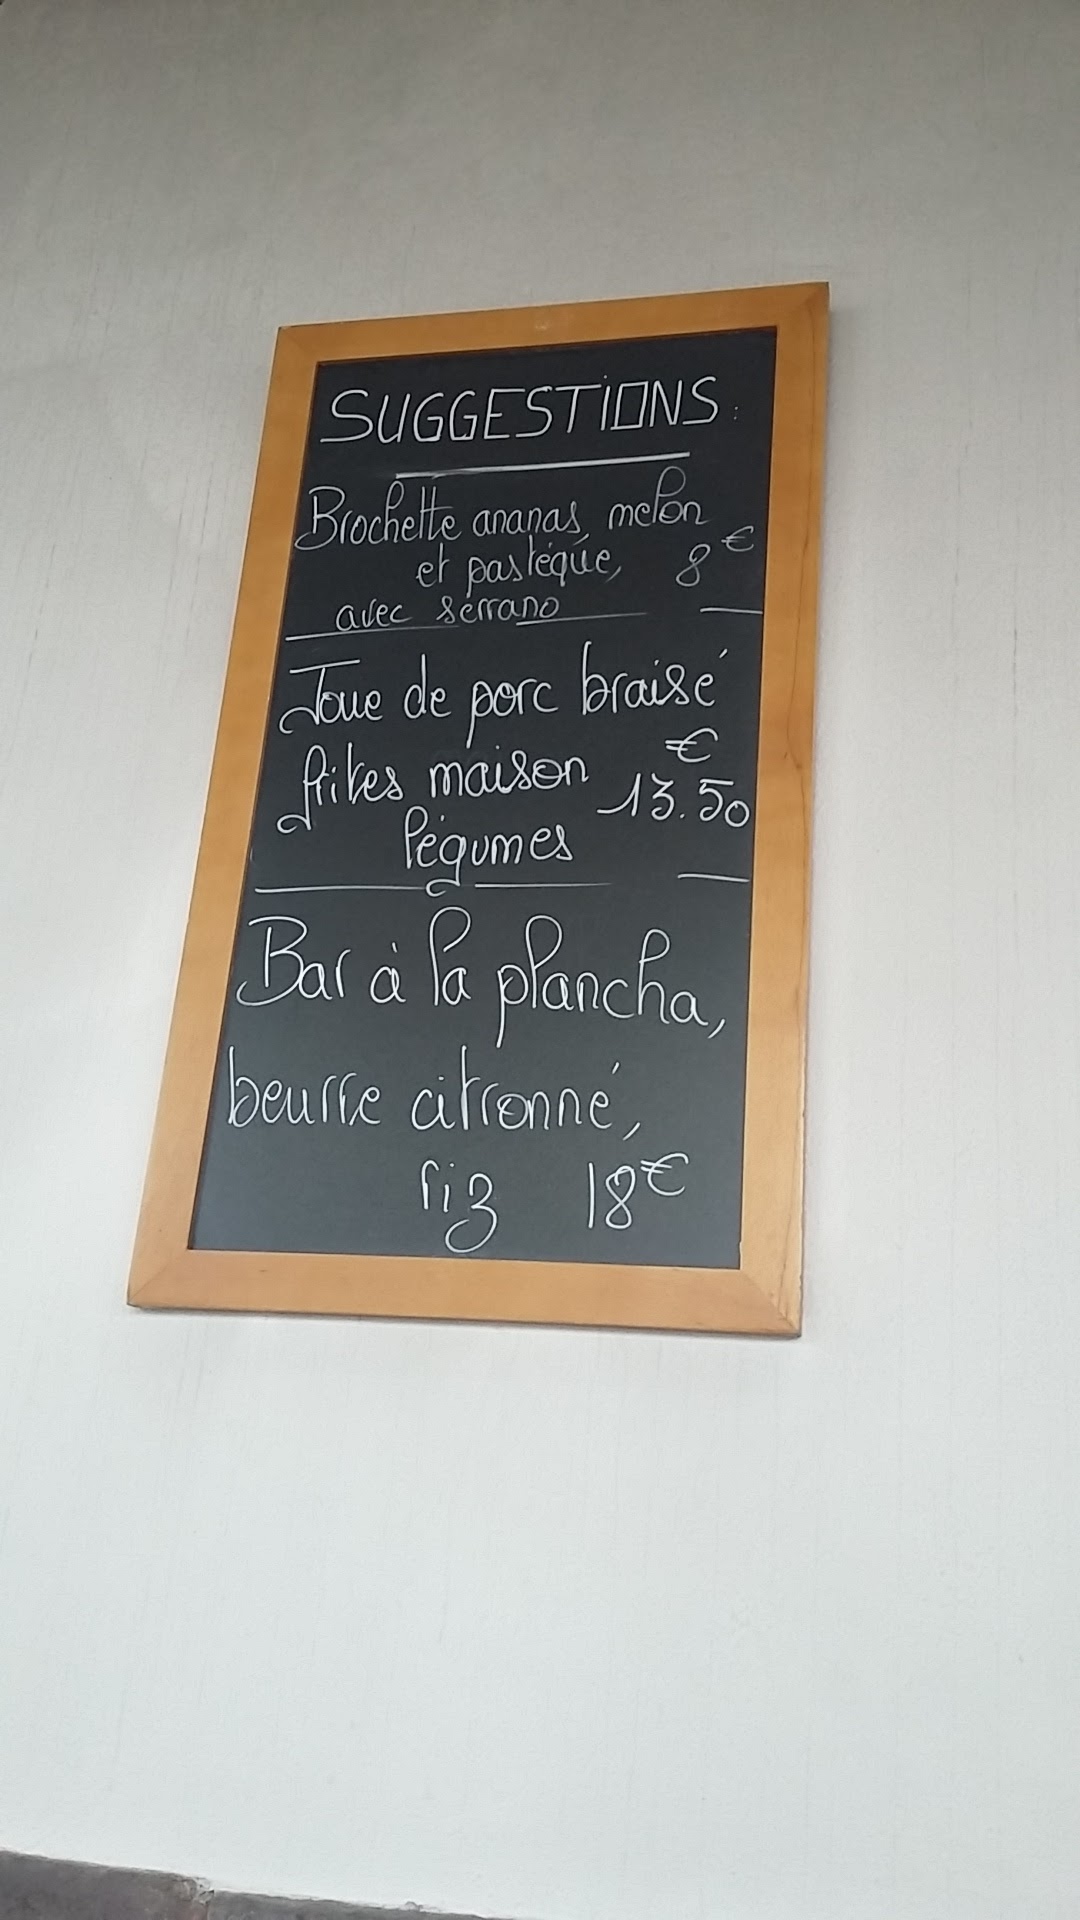 SUGGESTIONS:
Brochette ananas, melon
et pastéque, 8€
avec serrano
Joue de porc braisé
frites maison 13.50€
légumes
Bar à la plancha,
beurre citronné,
riz 18€